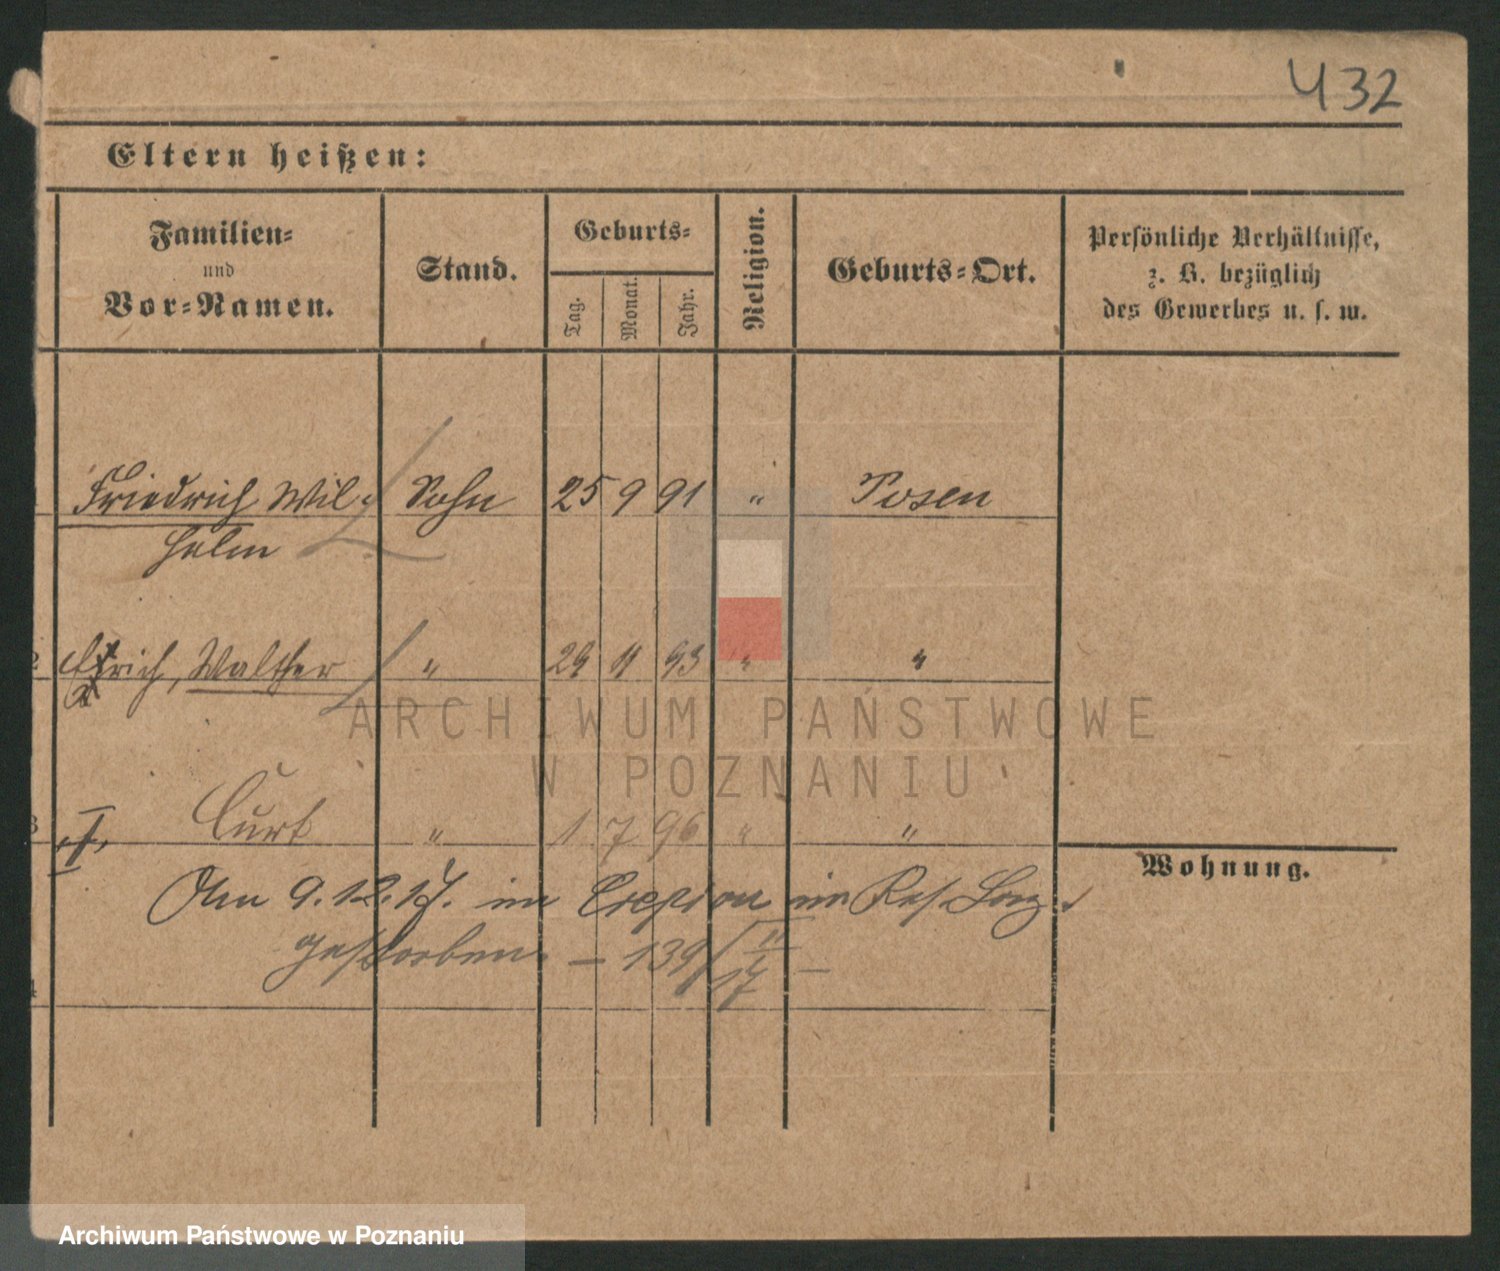 432
Eltern heißen:
Familien- und Vor-Namen.
Stand.
Geburts-
Tag.
Monat.
Jahr.
Religion.
Geburts-Ort.
Persönliche Verhältnisse,
z. B. bezüglich
des Gewerbes u. s. w.
1 Friedrich Wil- Sohn 25 9 91 " Posen
helm
2 Erich, Walther " 29 11 93 " "
3 Curt " 1 7 96 " "
Wohnung.
Am 9.12.17. im Res. Laz.
gestorben. — 139
4
ARCHIWUM PAŃSTWOWE
W POZNANIU
Archiwum Państwowe w Poznaniu